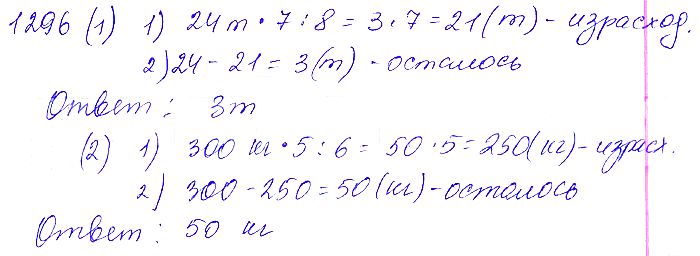 1296 (1) 1) 24 т · 7 : 8 = 3 · 7 = 21 (т) - израсход.
2) 24 - 21 = 3 (т) - осталось
Ответ : 3 т
(2) 1) 300 кг · 5 : 6 = 50 · 5 = 250 (кг) - израсх.
2) 300 - 250 = 50 (кг) - осталось
Ответ : 50 кг